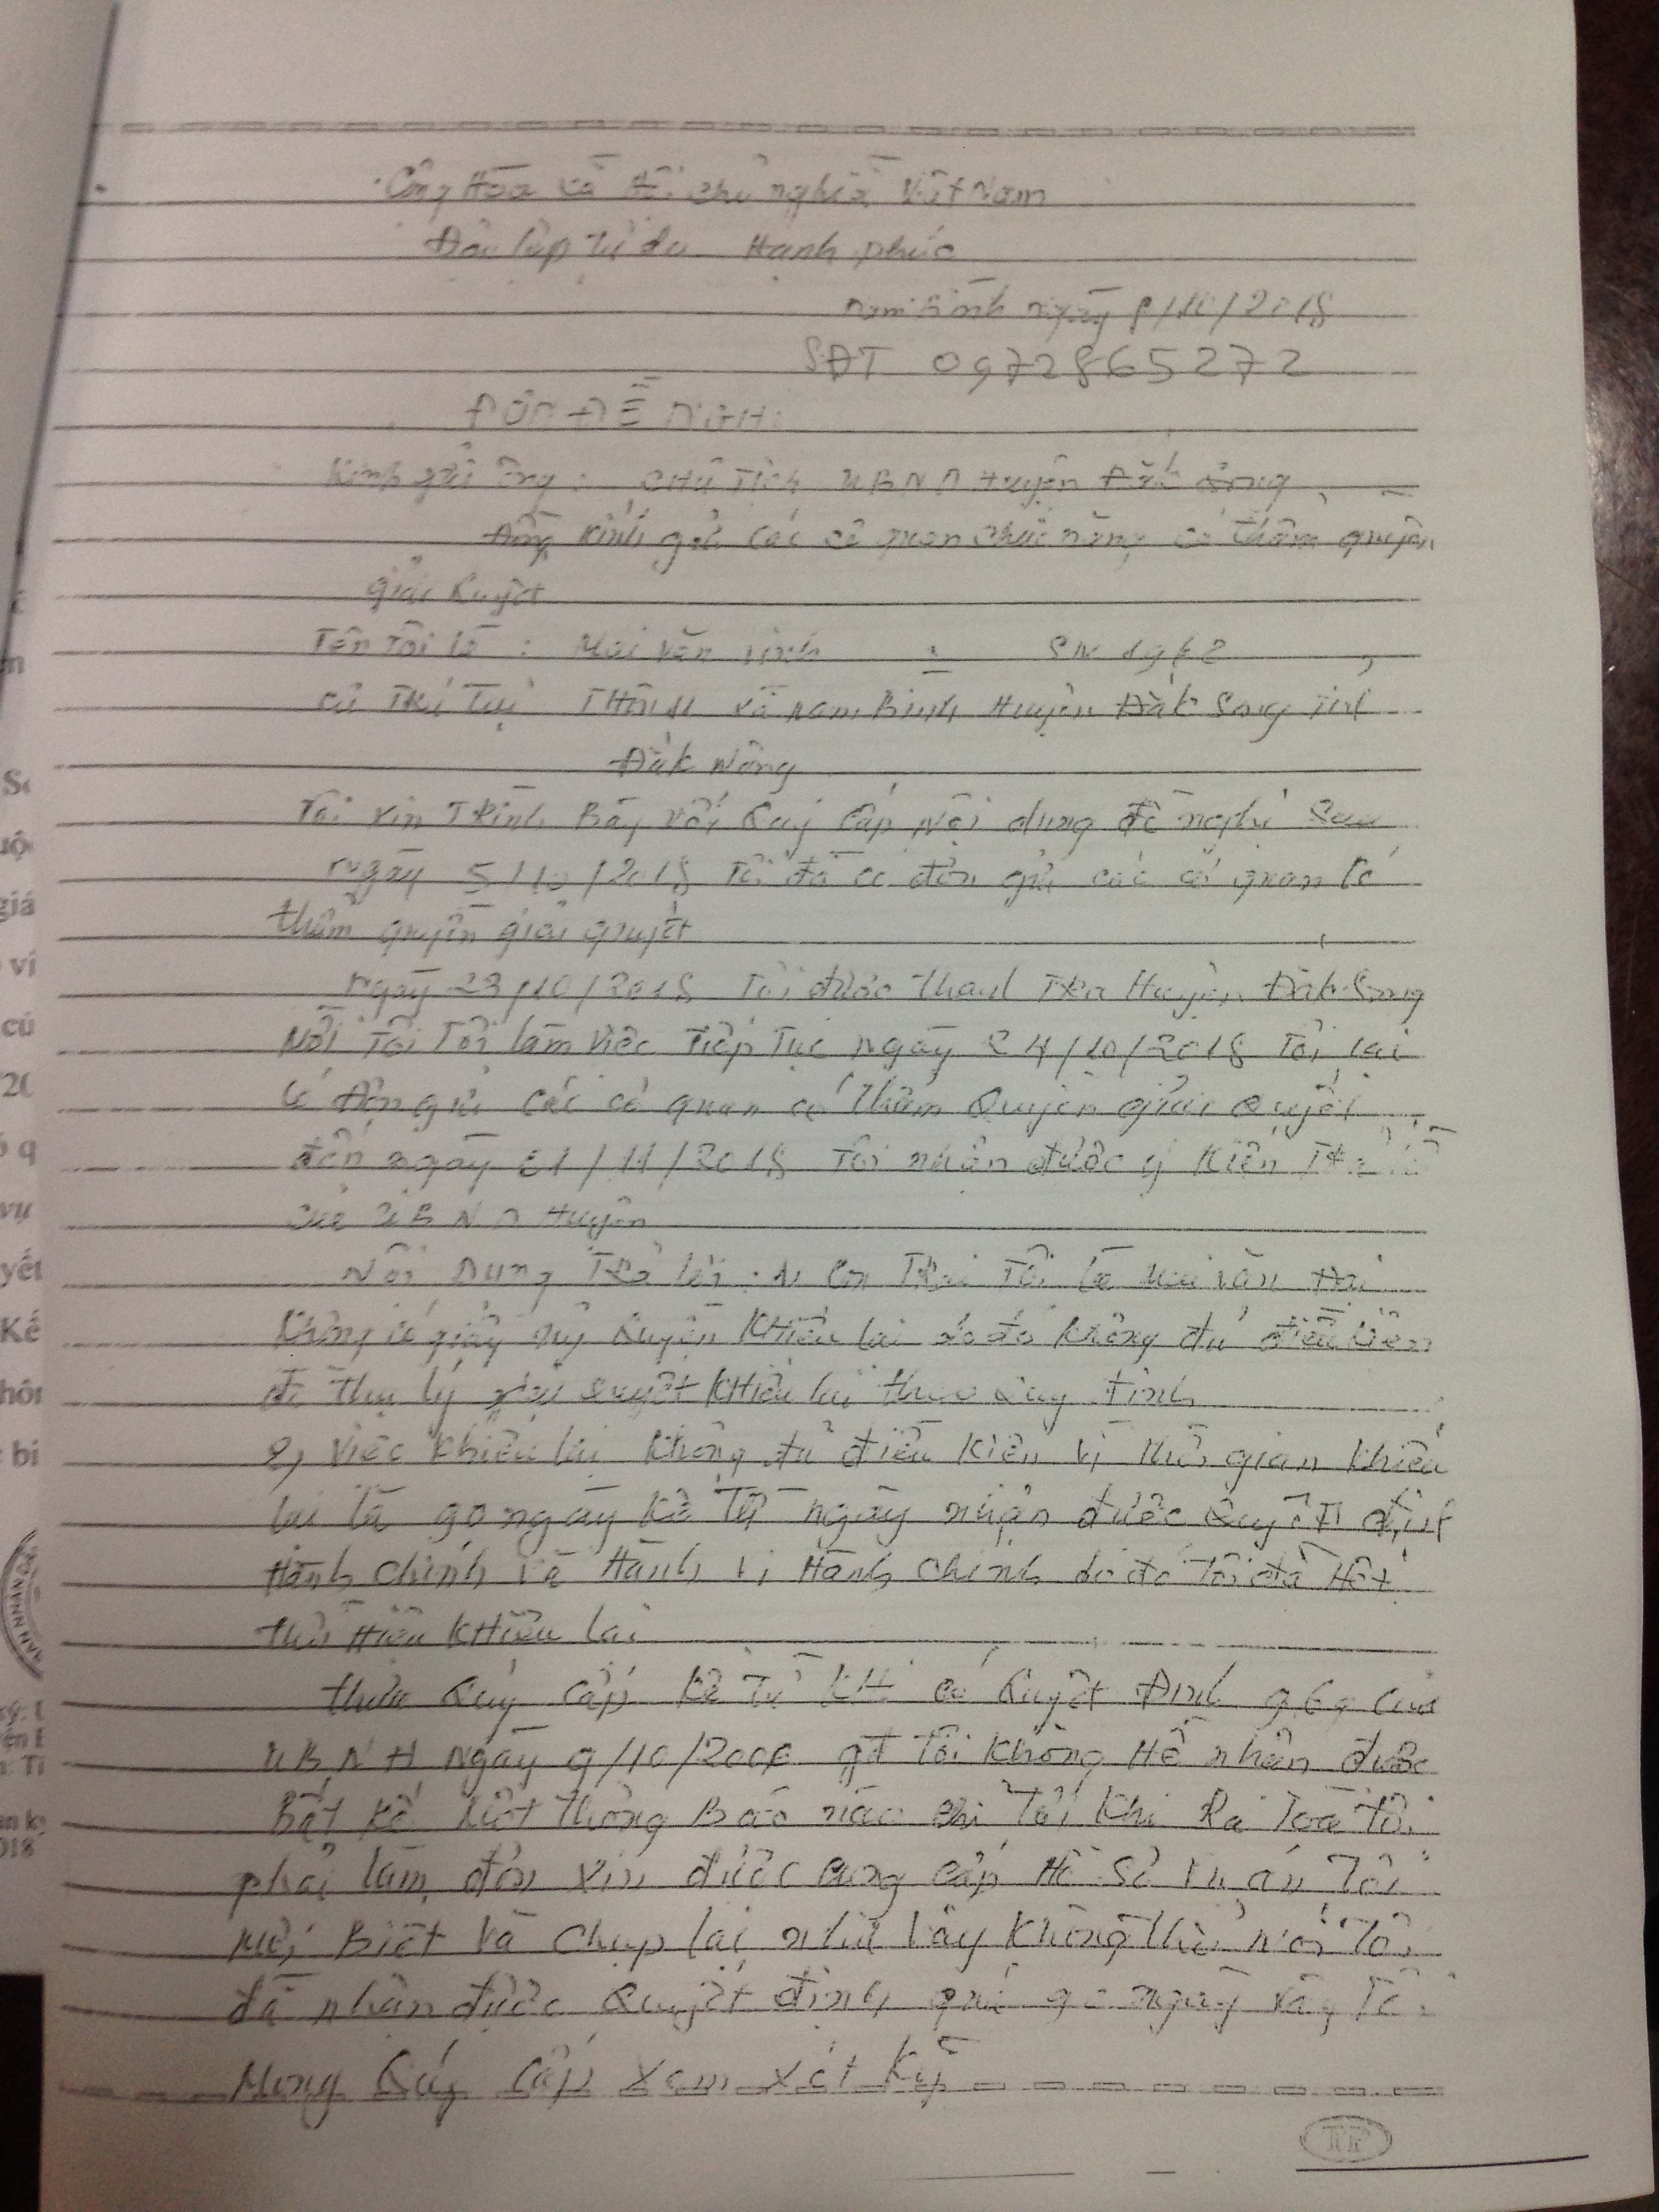 Công Hòa xã Hội chủ nghĩa Việt Nam
Độc lập Tự do Hạnh phúc
Nam Bình ngày 8/10/2018
SĐT 0972865272
ĐƠN ĐỀ NGHỊ
Kính gửi ông : CHủ Tịch UBND Huyện Đăk Song
Đồng kính gửi các cơ quan chức năng có thẩm quyền
giải quyết
Tên tôi là : Mai Văn : SN
cư TRú Tại THôn xã Nam Bình Huyện Đăk Song Tỉnh
Đăk Nông
Tôi xin TRình Bày với Quý Cấp Nội dung đề nghị sau
ngày 5/10/2018 Tôi đã có đơn gửi các cơ quan có
thẩm quyền giải quyết
ngày 23/10/2018 Tôi được Thanh TRa Huyện Đăk Song
Mời Tôi Tới làm việc Tiếp Tục ngày 24/10/2018 Tôi lại
có Đơn gửi các cơ quan có Thẩm Quyền giải Quyết
đến ngày 21/11/2018 Tôi nhận được ý Kiến TRả lời
của UBND Huyện
Nội Dung TRả lời : 1, Con TRai Tôi là Mai Văn Đại
Không có giấy ủy Quyền KHiếu lại do đó không đủ điều kiện
để thụ lý giải Quyết KHiếu lại theo Quy định
2, Việc khiếu lại không đủ điều Kiện Vì thời gian khiếu
lại là 90 ngày Kể Từ ngày nhận được Quyết định
Hành chính và Hành vi Hành chính do đó Tôi đã Hết
thời Hiệu KHiếu lại
thưa Quý Cấp Kể Từ KHi có Quyết Định 969 của
UBNH Ngày 9/10/2006 gđ Tôi không Hề nhận được
Bất kể một thông Báo nào chỉ Tới khi Ra Toà tôi
phải làm đơn xin được cung cấp Hồ Sơ vụ án Tôi
Mới Biết và Chụp lại như vậy không thể Nói Tôi
đã nhận được Quyết định quá 90 ngày vậy Tôi
Mong Quý Cấp Xem xét kỹ
TP